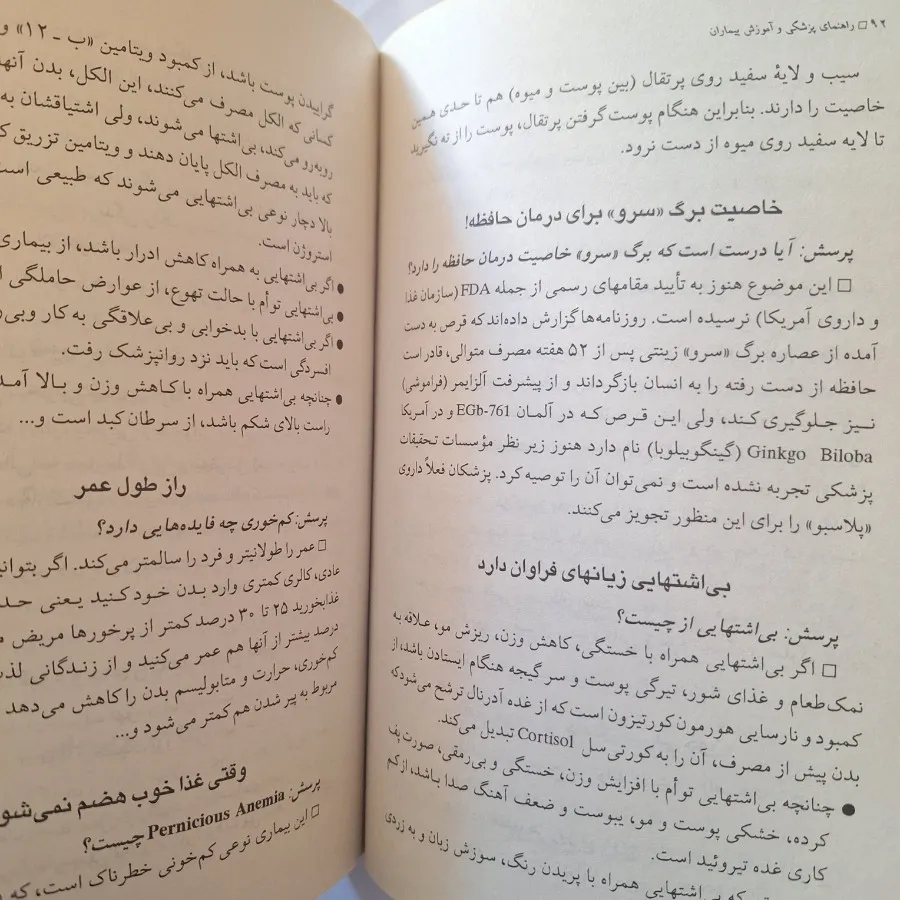 ۹۲ □ راهنمای پزشکی و آموزش بیماران
سیب و لایهٔ سفید روی پرتقال (بین پوست و میوه) هم تا حدی همین
خاصیت را دارند. بنابراین هنگام پوست گرفتن پرتقال، پوست را از ته نگیرید
تا لایه سفید روی میوه از دست نرود.
خاصیت برگ «سرو» برای درمان حافظه!
پرسش: آیا درست است که برگ «سرو» خاصیت درمان حافظه را دارد؟
□ این موضوع هنوز به تأیید مقامهای رسمی از جمله FDA (سازمان غذا
و داروی آمریکا) نرسیده است. روزنامه‌ها گزارش داده‌اند که قرص به دست
آمده از عصاره برگ «سرو» زینتی پس از ۵۲ هفته مصرف متوالی، قادر است
حافظه از دست رفته را به انسان بازگرداند و از پیشرفت آلزایمر (فراموشی)
نیز جلوگیری کند، ولی این قرص که در آلمان EGb-761 و در آمریکا
Ginkgo Biloba (گینگوبیلوبا) نام دارد هنوز زیر نظر مؤسسات تحقیقات
پزشکی تجربه نشده است و نمی‌توان آن را توصیه کرد. پزشکان فعلاً داروی
«پلاسبو» را برای این منظور تجویز می‌کنند.
بی‌اشتهایی زیانهای فراوان دارد
پرسش: بی‌اشتهایی از چیست؟
□ اگر بی‌اشتهایی همراه با خستگی، کاهش وزن، ریزش مو، علاقه به
نمک‌طعام و غذای شور، تیرگی پوست و سر گیجه هنگام ایستادن باشد، از
کمبود و نارسایی هورمون کورتیزون است که از غده آدرنال ترشح می‌شود که
بدن پیش از مصرف، آن را به کورتی‌سل Cortisol تبدیل می‌کند.
● چنانچه بی‌اشتهایی توأم با افزایش وزن، خستگی و بی‌رمقی، صورت پف
کرده، خشکی پوست و مو، یبوست و ضعف آهنگ صدا باشد، از کم
کاری غده تیروئید است.
که بی‌اشتهایی همراه با پریدن رنگ، سوزش زبان و به زردی
گراییدن پوست باشد، از کمبود ویتامین «ب ـ ۱۲» و
کسانی که الکل مصرف می‌کنند، این الکل، بدن آنها
روبه‌رو می‌کند، بی‌اشتها می‌شوند، ولی اشتیاقشان به
که باید به مصرف الکل پایان دهند و ویتامین تزریق
بالا دچار نوعی بی‌اشتهایی می‌شوند که طبیعی است
استروژن است.
● اگر بی‌اشتهایی به همراه کاهش ادرار باشد، از بیماری
● بی‌اشتهایی توأم با حالت تهوع، از عوارض حاملگی
● اگر بی‌اشتهایی با بدخوابی و بی‌علاقگی به کار
افسردگی است که باید نزد روانپزشک رفت.
● چنانچه بی‌اشتهایی همراه با کاهش وزن و بالا
راست بالای شکم باشد، از سرطان کبد است و...
راز طول عمر
پرسش: کم‌خوری چه فایده‌هایی دارد؟
□ عمر را طولانیتر و فرد را سالمتر می‌کند. اگر
عادی، کالری کمتری وارد بدن خود کنید یعنی
غذابخورید ۲۵ تا ۳۰ درصد کمتر از پرخورها مریض
درصد بیشتر از آنها هم عمر می‌کنید و از زندگانی
کم‌خوری، حرارت و متابولیسم بدن را کاهش می‌دهد
مربوط به پیر شدن هم کمتر می‌شود و...
وقتی غذا خوب هضم
پرسش: Pernicious Anemia چیست؟
□ این بیماری نوعی کم‌خونی خطرناک است، که